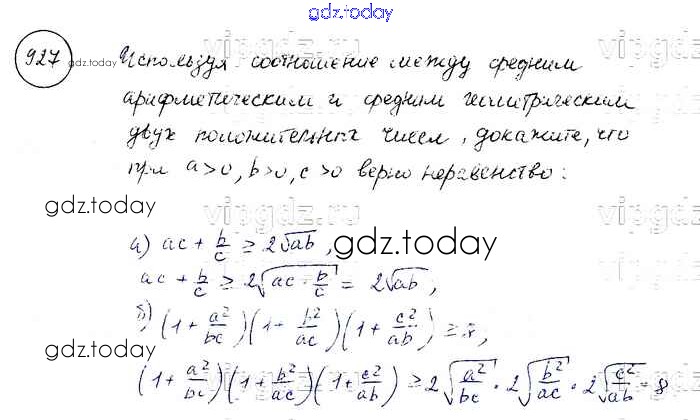 gdz.today
927 gdz.today Используя соотношение между средним
арифметическим и средним геометрическим
двух положительных чисел, докажите, что
при a>0, b>0, c>0 верно неравенство:
gdz.today
а) ac + b/c ≥ 2√ab,
gdz.today
ac + b/c ≥ 2√(ac · b/c) = 2√ab,
б) (1 + a²/bc)(1 + b²/ac)(1 + c²/ab) ≥ 8,
gdz.today
(1 + a²/bc)(1 + b²/ac)(1 + c²/ab) ≥ 2√(a²/bc) · 2√(b²/ac) · 2√(c²/ab) = 8